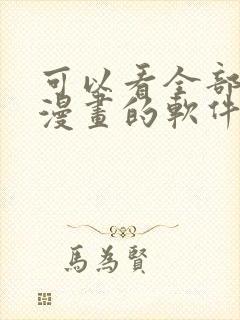 可以看全部
漫畫的軟件
馬為賢